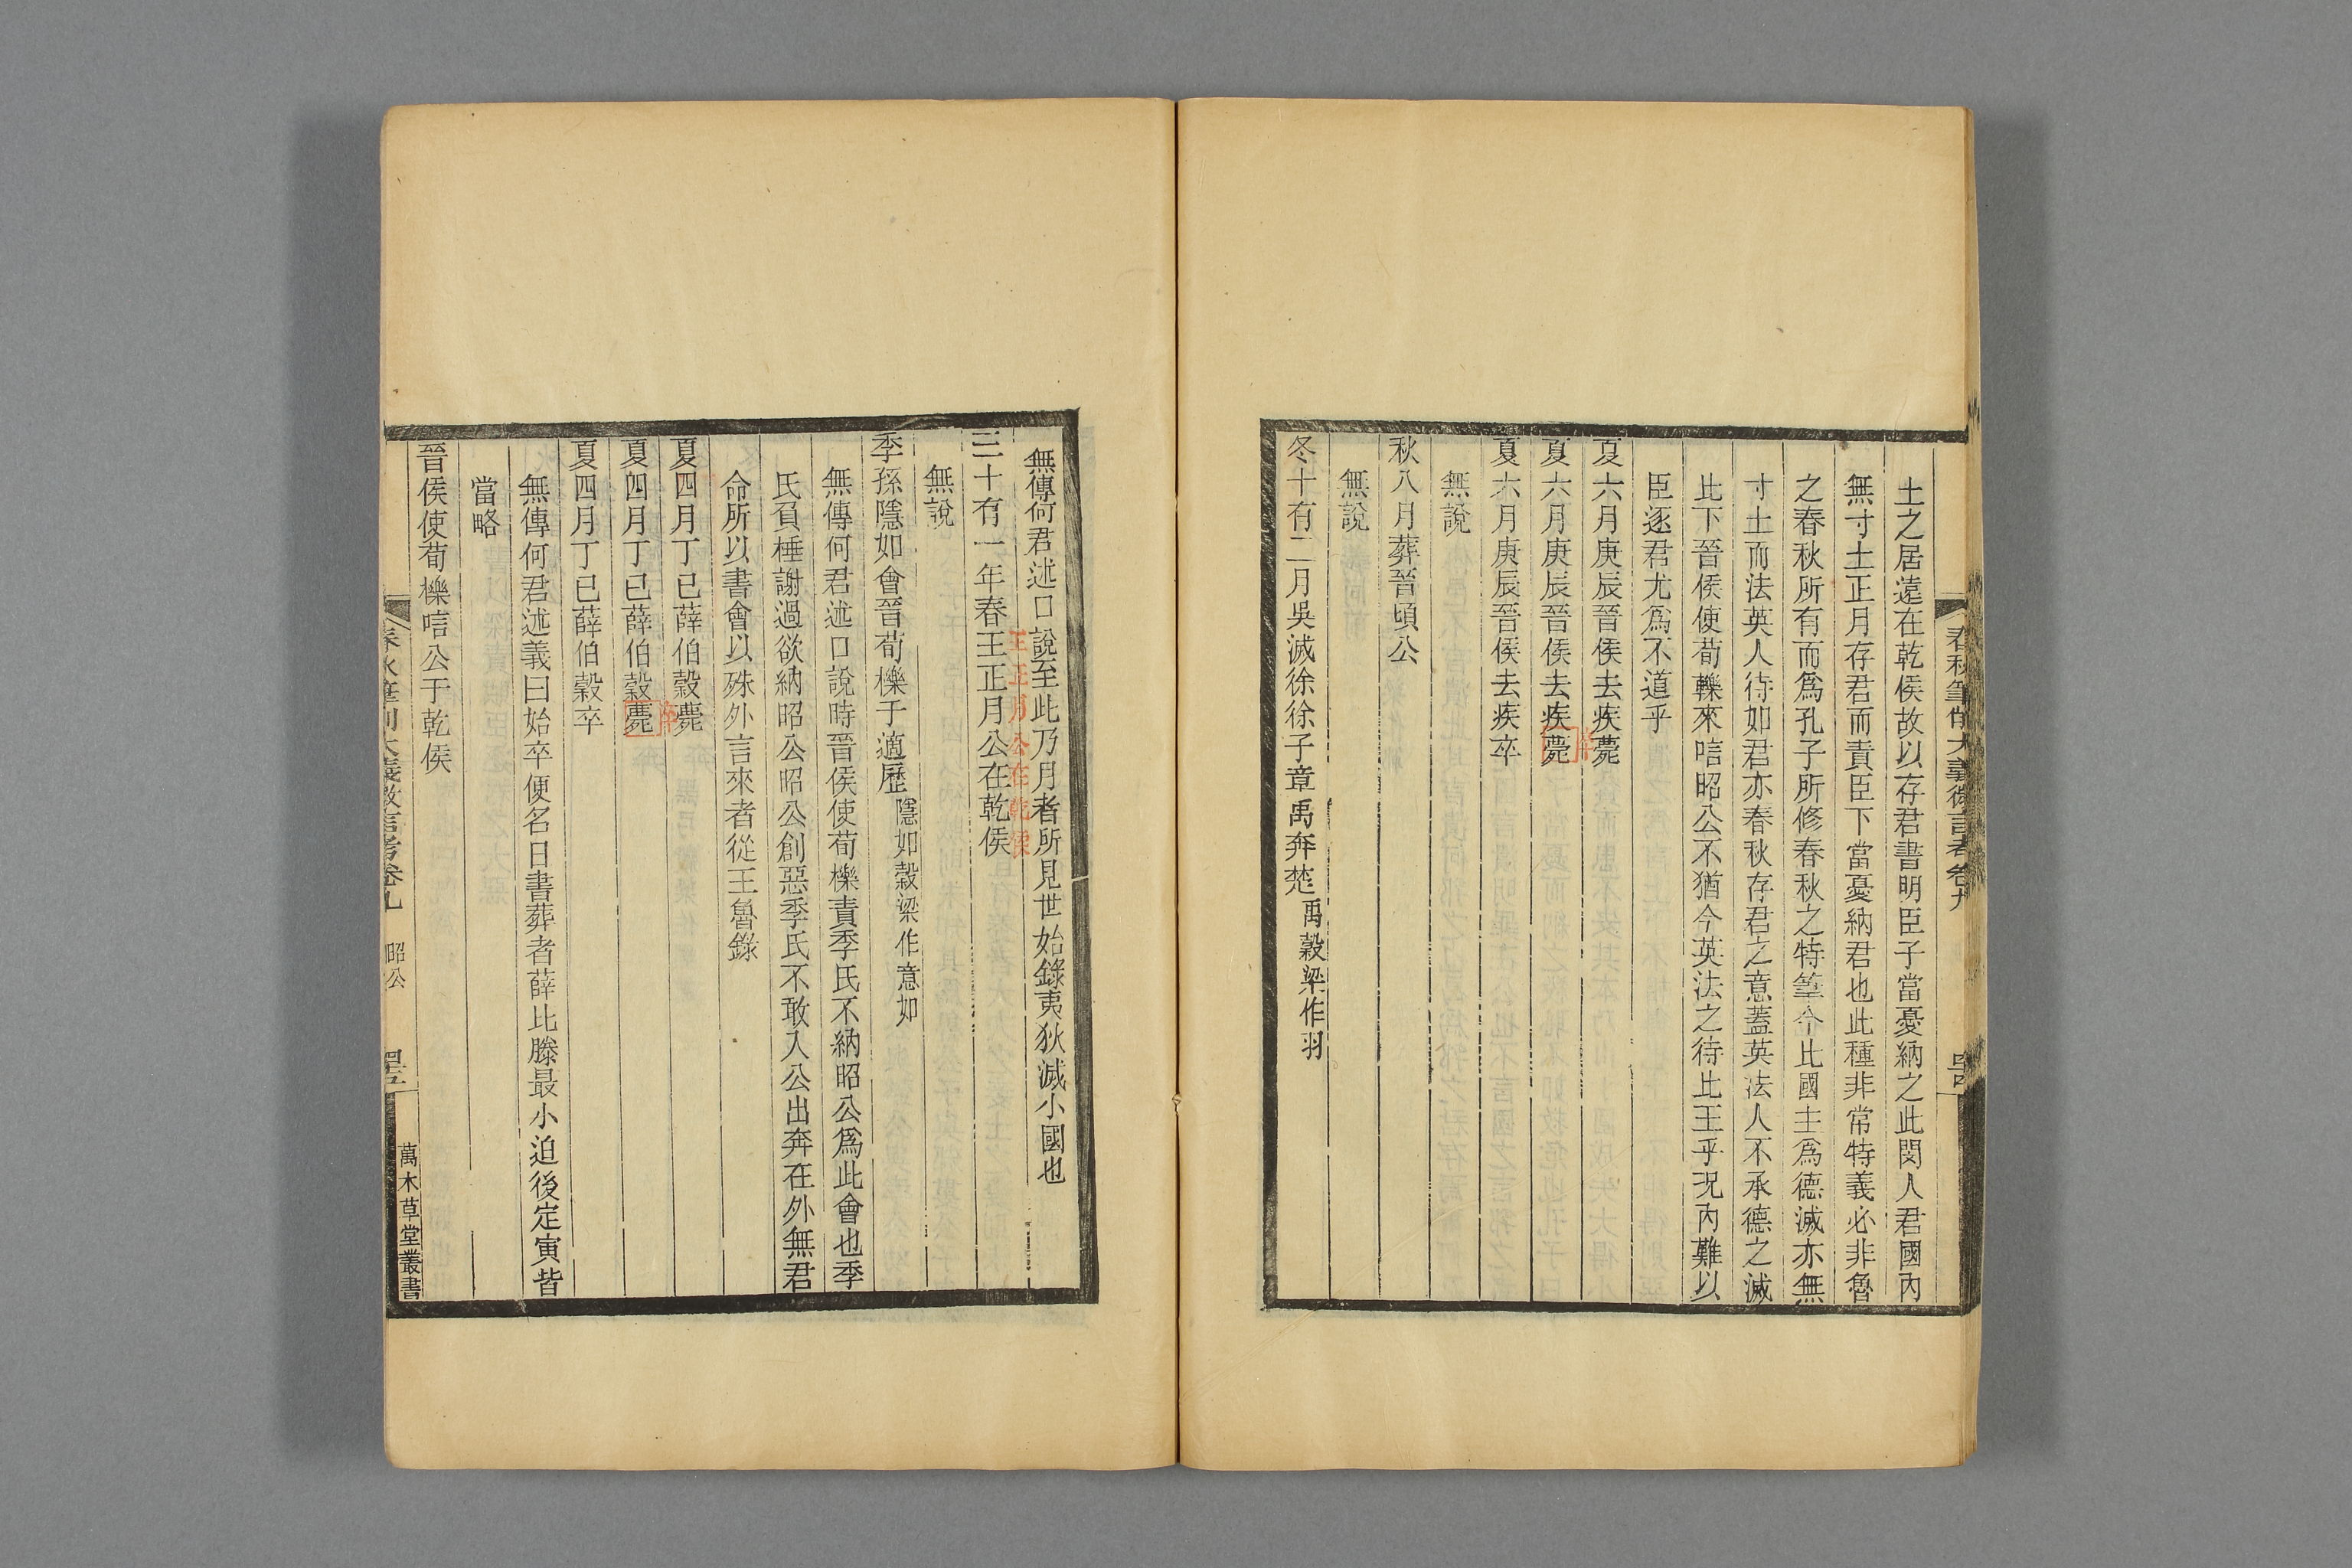 春秋筆削大義微言考卷九
土之居遠在乾侯故以存君書明臣子當憂納之此閔人君國內
無寸土正月存君而責臣下當憂納君也此種非常特義必非魯
之春秋所有而爲孔子所修春秋之特筆今比國主爲德滅亦無
寸土而法英人待如君亦春秋存君之意蓋英法人不承德之滅
比下晉侯使荀轢來唁昭公不猶今英法之待比王乎況內難以
臣逐君尤爲不道乎
夏六月庚辰晉侯去疾薨
卒
夏六月庚辰晉侯去疾薨
夏六月庚辰晉侯去疾卒
無說
秋八月葬晉頃公
無說
冬十有二月吳滅徐徐子章禹奔楚禹穀梁作羽
無傳何君述口說至此乃月者所見世始錄夷狄滅小國也
王正月公在乾侯
三十有一年春王正月公在乾侯
無說
季孫隱如會晉荀櫟于適歷隱如穀梁作意如
無傳何君述口說時晉侯使荀櫟責季氏不納昭公爲此會也季
氏負棰謝過欲納昭公昭公創惡季氏不敢入公出奔在外無君
命所以書會以殊外言來者從王魯錄
夏四月丁巳薛伯穀薨
卒
夏四月丁巳薛伯穀薨
夏四月丁巳薛伯穀卒
無傳何君述義曰始卒便名日書葬者薛比滕最小迫後定寅皆
當略
晉侯使荀櫟唁公于乾侯
春秋筆削大義微言考卷九 昭公
萬木草堂叢書